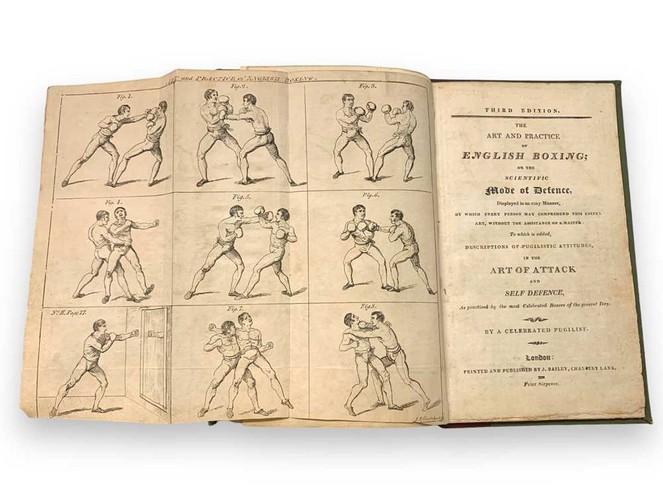 and PRACTICE of ENGLISH BOXING.
Fig. 1.
Fig. 2.
Fig. 3.
Fig. 5.
Fig. 6.
Fig. 7.
Fig. 8.
THIRD EDITION.
THE
ART AND PRACTICE
OF
ENGLISH BOXING;
OR THE
SCIENTIFIC
Mode of Defence,
Displayed in an easy Manner,
BY WHICH EVERY PERSON MAY COMPREHEND THIS USEFUL
ART, WITHOUT THE ASSISTANCE OF A MASTER:
To which is added,
DESCRIPTIONS OF PUGILISTIC ATTITUDES,
IN THE
ART OF ATTACK
AND
SELF DEFENCE,
As practised by the most Celebrated Boxers of the present Day.
BY A CELEBRATED PUGILIST.
London:
PRINTED AND PUBLISHED BY J. BAILEY, CHANCERY LANE.
Price Sixpence.